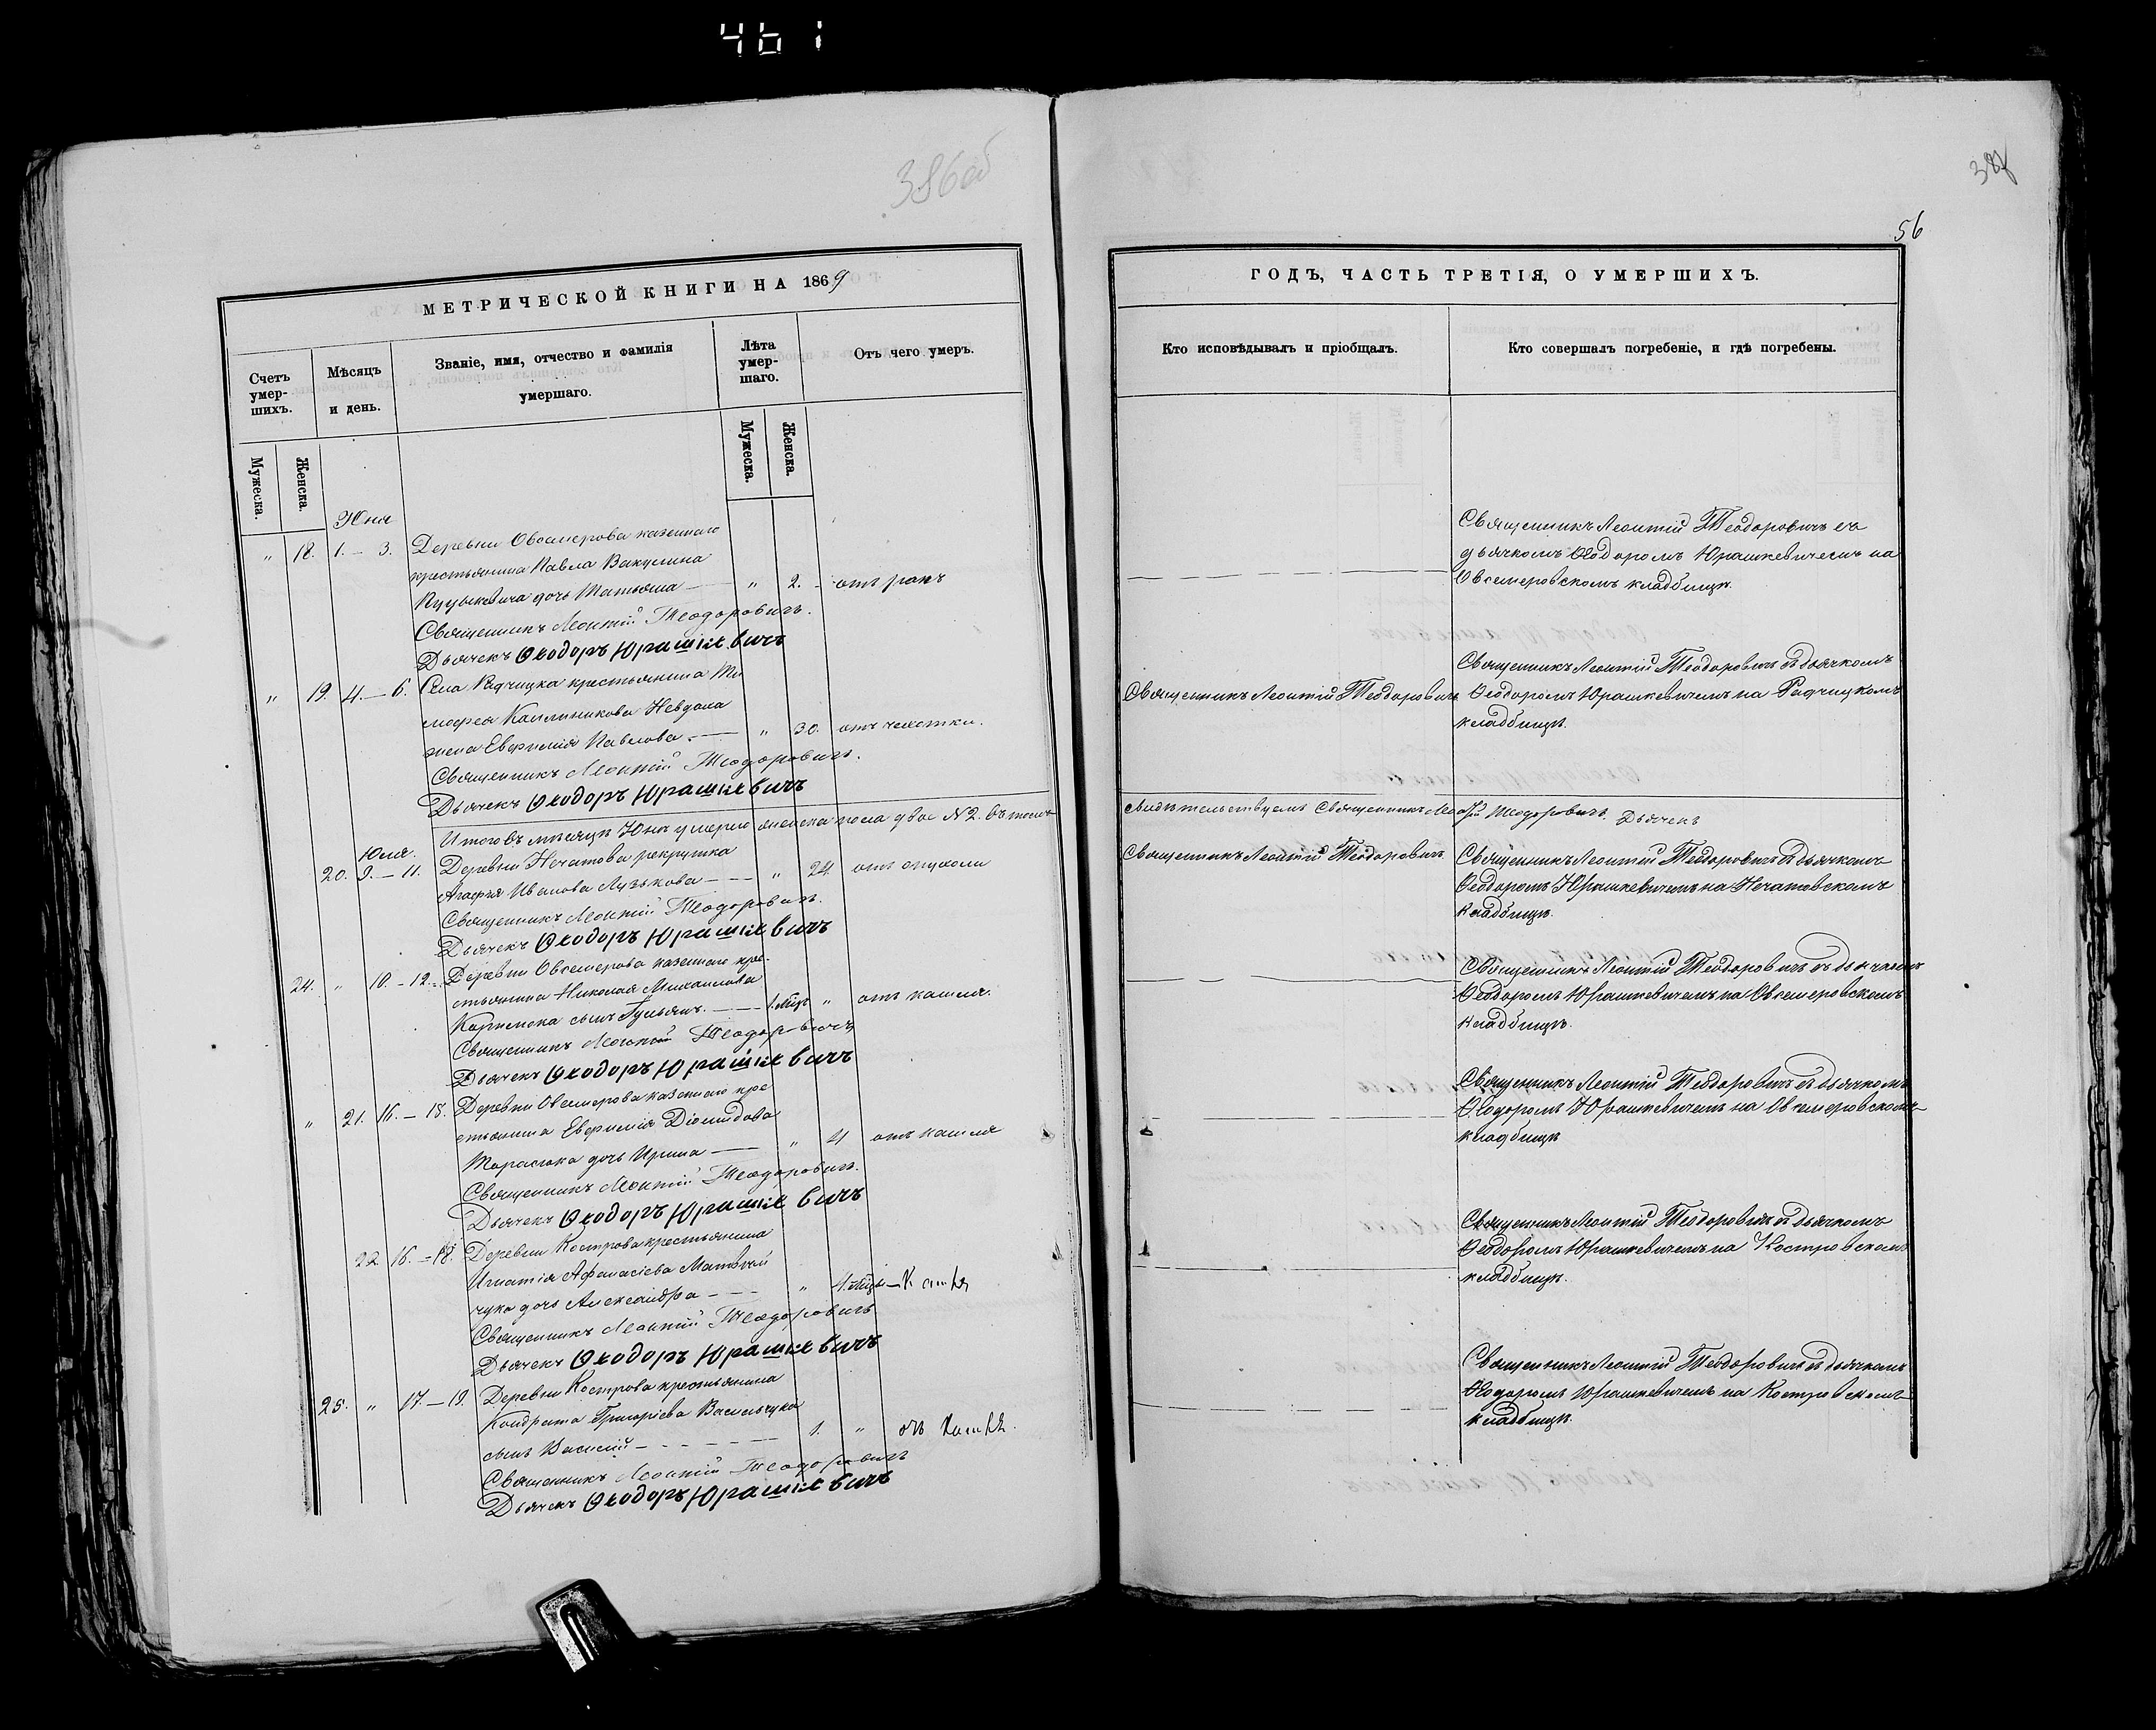 461
386об
МЕТРИЧЕСКОЙ КНИГИ НА 1869
Счетъ умер-шихъ.
Мѣсяцъ и день.
Званіе, имя, отчество и фамилія умершаго.
Лѣта умер-шаго.
Отъ чего умеръ.
Мужеска.
Женска.
Мужеска.
Женска.
Юня
" 18. 1. – 3. Деревни Овсемерова казеннаго
крестьянина Павла Вакулина
дочь Татьяна — " 2. –
Священникъ Леонтій Теодоровичъ.
Дьячекъ Ѳеодоръ Юрашкевичъ
" 19. 4. – 6. Села Радчицка крестьянина Ти
мофея Каллиникова
жена Евфимія Павлова. — " 30. отъ чахотки.
Священникъ Леонтій Теодоровичъ.
Дьячекъ Ѳеодоръ Юрашкевичъ
Итого въ мѣсяцѣ Юнѣ умерло женска пола двое №2. Въ томъ
Юля.
20. 9. – 11. Деревни Нечатова рекрутка
Агафія Иванова — " 24 отъ опухоли
Священникъ Леонтій Теодоровичъ.
Дьячекъ Ѳеодоръ Юрашкевичъ
24. " 10. – 12. Деревни Овсемерова казеннаго кре-
стьянина Николая Михаилова
сынъ — 1. мѣс. " отъ кашля.
Священникъ Леонтій Теодоровичъ
Дьячекъ Ѳеодоръ Юрашкевичъ
" 21. 16. – 18. Деревни Овсемерова казеннаго кре
стьянина Евфимія Діомидова
Тарасюка дочь Ирина — " отъ кашля
Священникъ Леонтій Теодоровичъ.
Дьячекъ Ѳеодоръ Юрашкевичъ
22. 16. – 18. Деревни Кострова крестьянина
Игнатія Афанасіева Матвей
чука дочь Александра — "
Священникъ Леонтій Теодоровичъ
Дьячекъ Ѳеодоръ Юрашкевичъ
25. " 17. – 19. Деревни Кострова крестьянина
Кондрата Григоріева Васильчука
сынъ Василій — 1. " отъ кашля.
Священникъ Леонтій Теодоровичъ
Дьячекъ Ѳеодоръ Юрашкевичъ
387
56
ГОДЪ, ЧАСТЬ ТРЕТІЯ, О УМЕРШИХЪ.
Кто исповѣдывалъ и пріобщалъ.
Кто совершалъ погребеніе, и гдѣ погребены.
Священникъ Леонтій Теодоровичъ съ
дьячкомъ Ѳеодоромъ Юрашкевичемъ на
Овсемеровскомъ кладбищѣ.
Священникъ Леонтій Теодоровичъ
Священникъ Леонтій Теодоровичъ съ дьячкомъ
Ѳеодоромъ Юрашкевичемъ на Радчицкомъ
кладбищѣ.
свидѣтельствуемъ Священникъ Леонтій Теодоровичъ. Дьячекъ
Священникъ Леонтій Теодоровичъ
Священникъ Леонтій Теодоровичъ съ дьячкомъ
Ѳеодоромъ Юрашкевичемъ на Нечатовскомъ
кладбищѣ.
Священникъ Леонтій Теодоровичъ съ дьячкомъ
Ѳеодоромъ Юрашкевичемъ на Овсемеровскомъ
кладбищѣ.
Священникъ Леонтій Теодоровичъ съ дьячкомъ
Ѳеодоромъ Юрашкевичемъ на Овсемеровскомъ
кладбищѣ
Священникъ Леонтій Теодоровичъ съ дьячкомъ
Ѳеодоромъ Юрашкевичемъ на Костровскомъ
кладбищѣ.
Священникъ Леонтій Теодоровичъ съ дьячкомъ
Ѳеодоромъ Юрашкевичемъ на Костровскомъ
кладбищѣ.